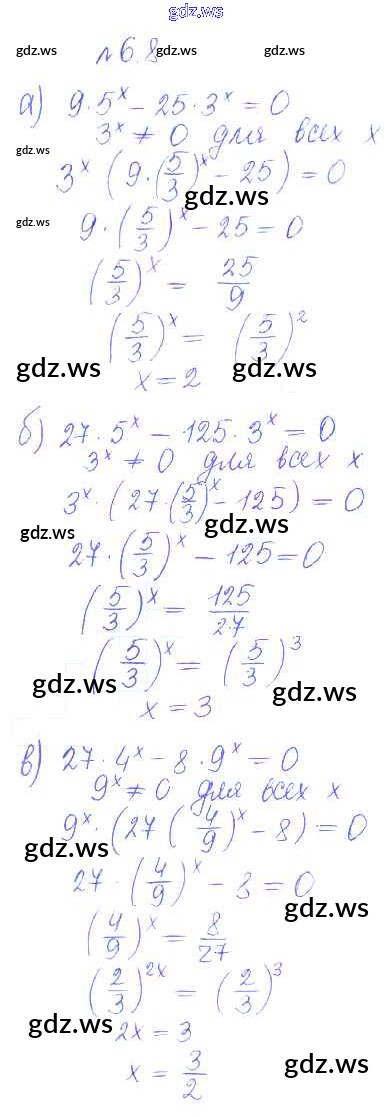 gdz.ws
№6.8
gdz.ws gdz.ws gdz.ws
а) 9·5ˣ − 25·3ˣ = 0
3ˣ ≠ 0 для всех x
gdz.ws
3ˣ (9·(5/3)ˣ − 25) = 0
gdz.ws
9·(5/3)ˣ − 25 = 0
gdz.ws
(5/3)ˣ = 25/9
(5/3)ˣ = (5/3)²
gdz.ws gdz.ws
x = 2
б) 27·5ˣ − 125·3ˣ = 0
3ˣ ≠ 0 для всех x
gdz.ws
3ˣ·(27·(5/3)ˣ − 125) = 0
gdz.ws gdz.ws
27·(5/3)ˣ − 125 = 0
(5/3)ˣ = 125/27
(5/3)ˣ = (5/3)³
gdz.ws gdz.ws
x = 3
в) 27·4ˣ − 8·9ˣ = 0
9ˣ ≠ 0 для всех x
9ˣ·(27(4/9)ˣ − 8) = 0
gdz.ws
27·(4/9)ˣ − 8 = 0
gdz.ws
(4/9)ˣ = 8/27
(2/3)²ˣ = (2/3)³
gdz.ws
2x = 3
x = 3/2
gdz.ws